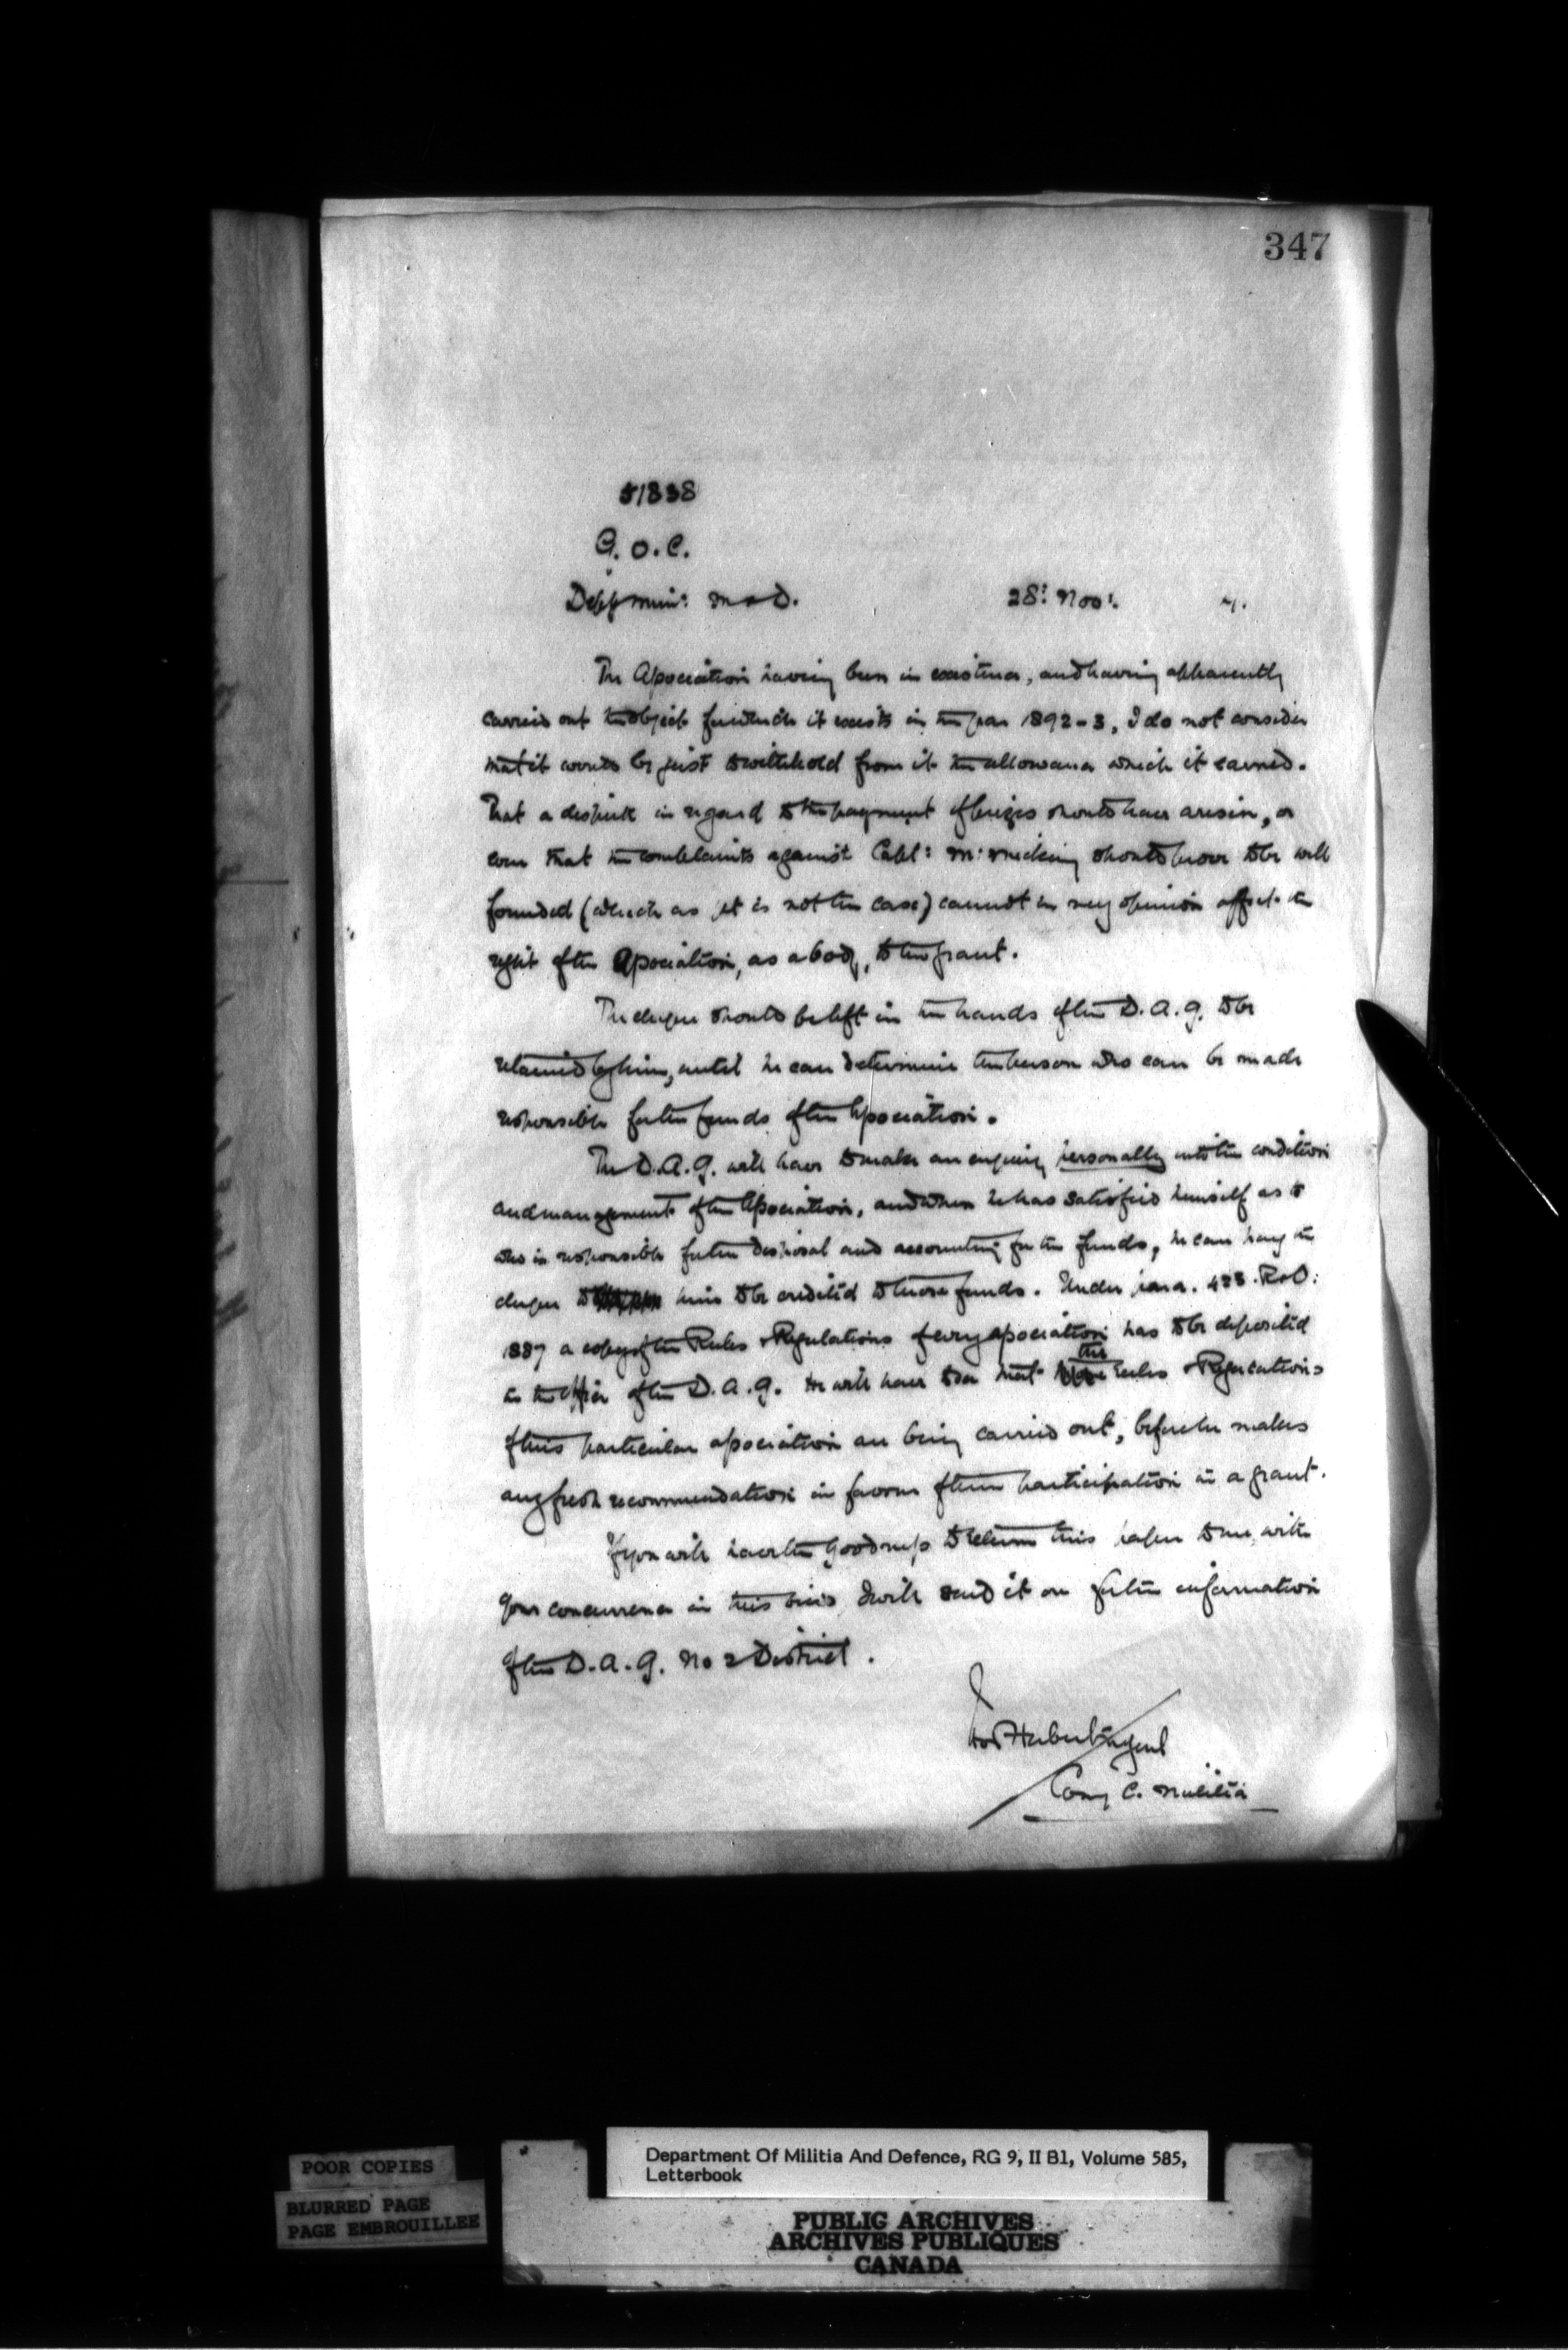 347
51838
G. O. C.
Dep Minr: M & D. 28: Nov:
The Association having been in existence, and having apparently
carried out the object for which it exists in the year 1892-3, I do not consider
that it would be just to withhold from it the allowance which it earned.
That a dispute in regard to the payment of prizes should have arisen, or
even that the complaints against Capt: should prove to be well
founded (which as yet is not the case) cannot in my opinion affect the
right of the Association, as a body, to the grant.
The cheque should be left in the hands of the D. A. G. to be
retained by him, until he can determine the person who can be made
responsible for the funds of the Association.
The D. A. G. will have to make an enquiry personally into the condition
and management of the Association, and when he has satisfied himself as to
who is responsible for the disposal and accounting for the funds, he can hang the
cheque to him to be credited to those funds. Under para. 423. R & O:
1887 a copy of the Rules & Regulations of every association has to be deposited
in the office of the D. A. G. He will have to see that the rules & Regulations
of this particular association are being carried out, before he makes
any fresh recommendation in favour of their participation in a grant.
If you will have the goodness to return this paper to me, with
your concurrence in this view I will send it on for the information
of the D. A. G. No 2 District.
Ivor Herbert
Comg C. Militia
POOR COPIES
BLURRED PAGE
PAGE EMBROUILLEE
Department Of Militia And Defence, RG 9, II B1, Volume 585,
Letterbook
PUBLIC ARCHIVES
ARCHIVES PUBLIQUES
CANADA